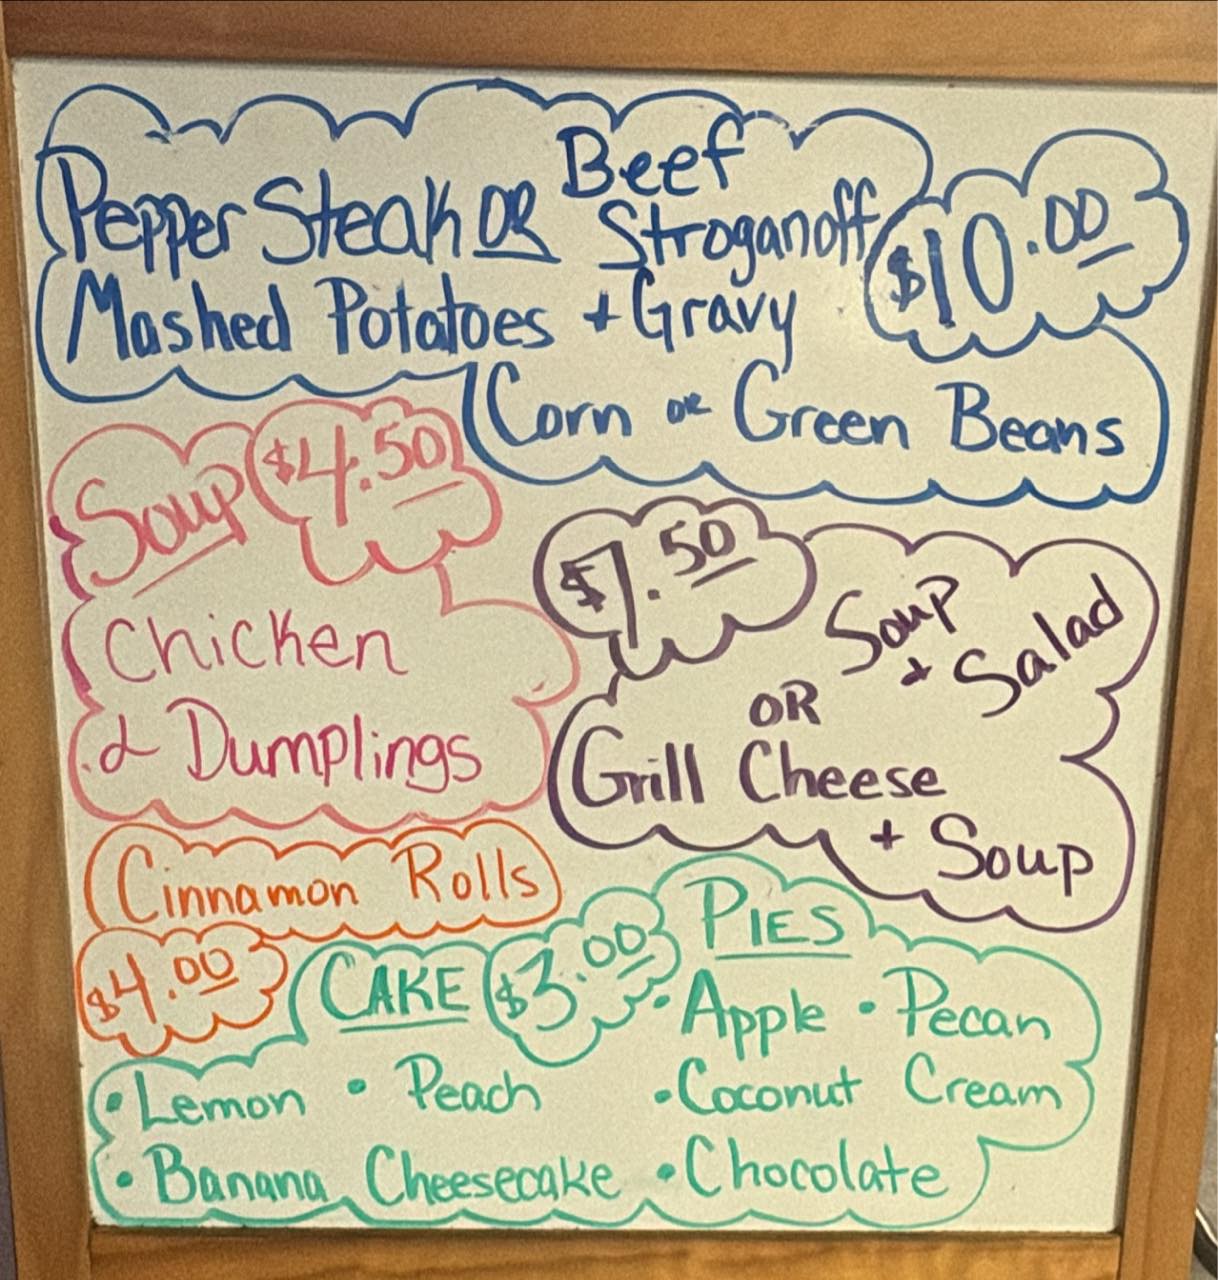 Pepper Steak OR Beef Stroganoff
$10.00
Mashed Potatoes + Gravy
Corn or Green Beans
Soup $4.50
Chicken
& Dumplings
$7.50
Soup
+ Salad
OR
Grill Cheese
+ Soup
Cinnamon Rolls
$4.00
CAKE $3.00 PIES
• Lemon • Peach
• Banana Cheesecake
• Apple • Pecan
• Coconut Cream
• Chocolate